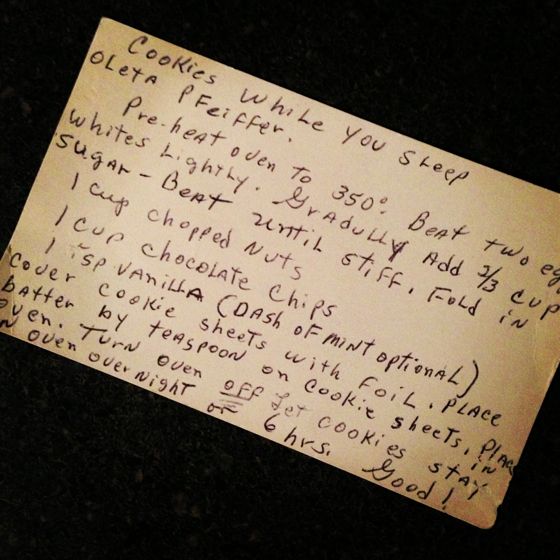 Cookies While You Sleep
Oleta Pfeiffer.
Pre-heat oven to 350°. Beat two eg
whites Lightly. Gradully Add 2/3 cup
sugar - Beat until stiff. Fold in
1 cup chopped nuts
1 cup chocolate chips
1 tsp vanilla (Dash of mint optional)
Cover cookie sheets with foil. Place
batter by teaspoon on cookie sheets. Place in
oven. Turn oven off Let cookies stay
n oven overnight or 6 hrs. Good!